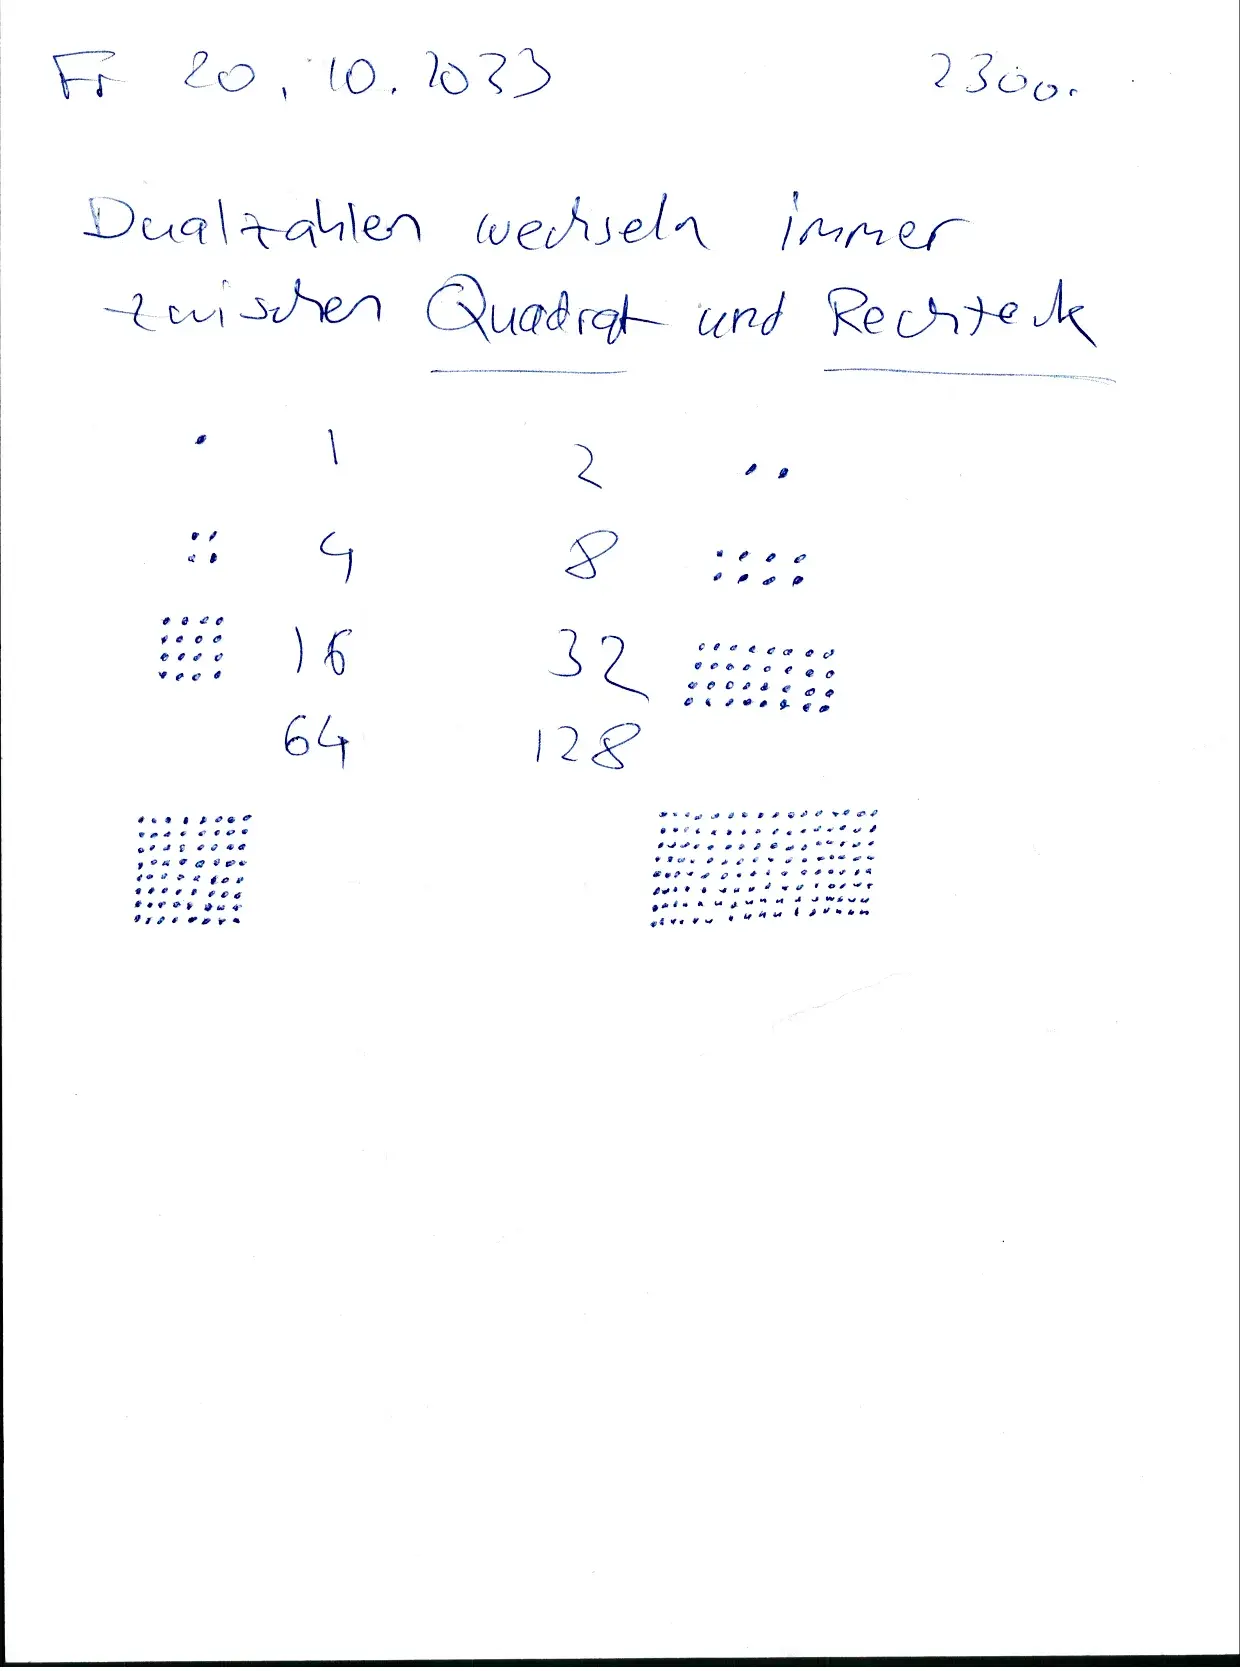 Fr 20.10.2023 2300.
Dualzahlen wechseln immer
zwischen Quadrat und Rechteck
1 2
4 8
16 32
64 128